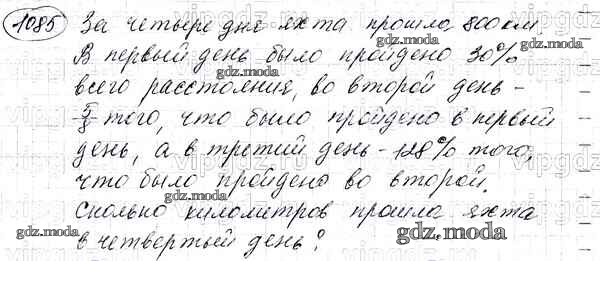 1085 За четыре дня яхта прошла 800 км.
В первый день было пройдено 30%
всего расстояния, во второй день -
5/8 того, что было пройдено в первый
день, а в третий день - 128% того,
что было пройдено во второй.
Сколько километров прошла яхта
в четвёртый день?
gdz.moda
gdz.moda
gdz.moda
gdz.moda
gdz.moda
gdz.moda